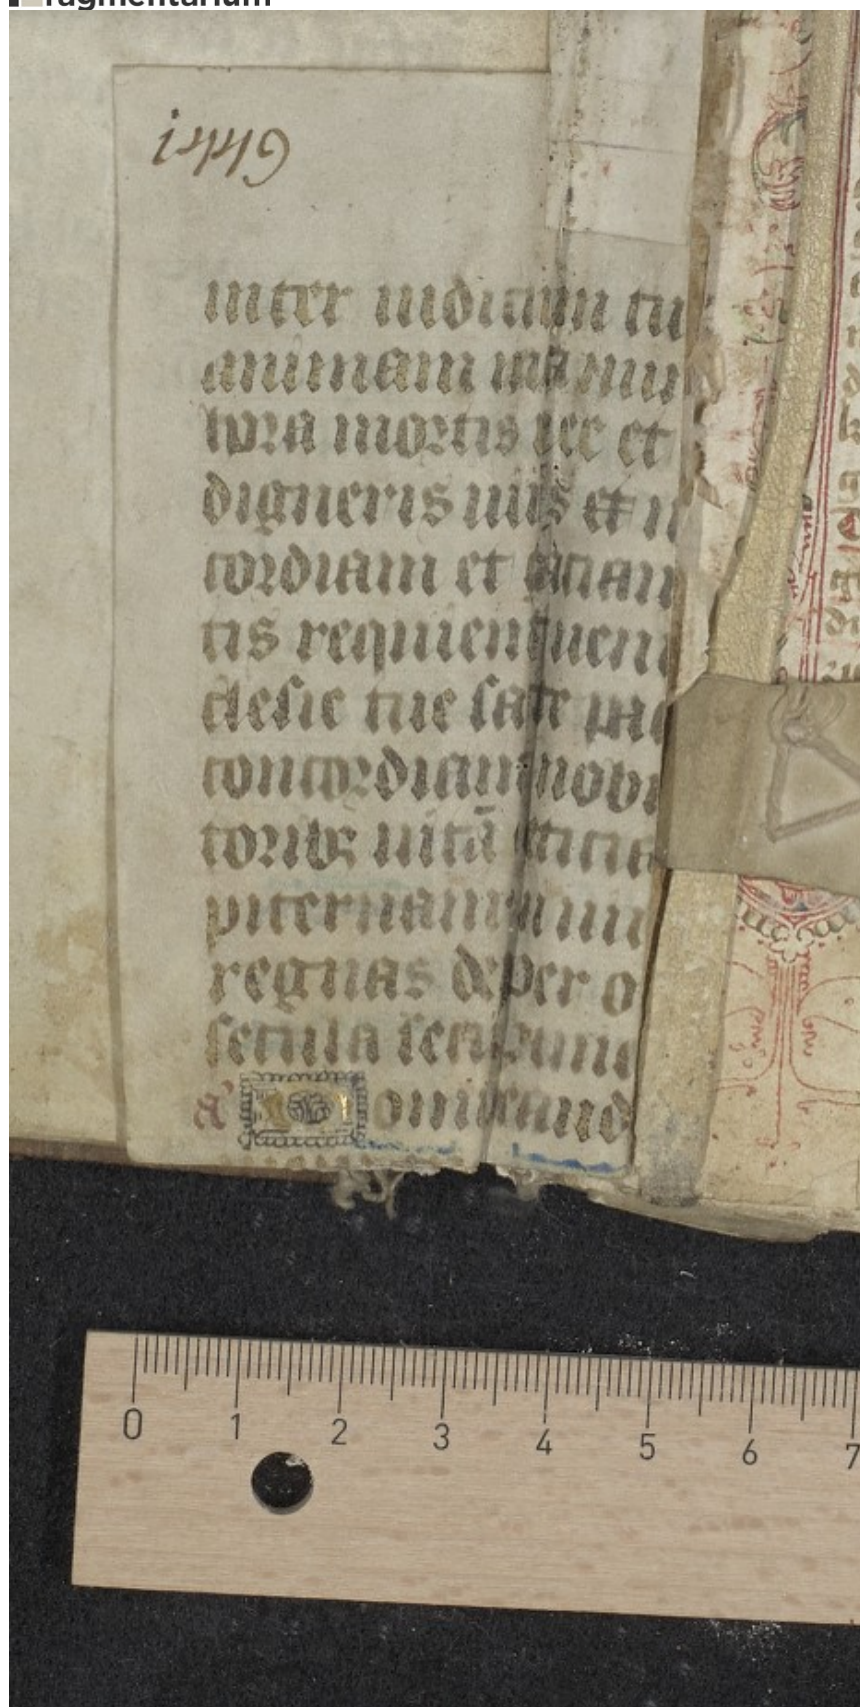 ragmentarium
1449
inter iudicium tu
animam meam nu
hora mortis nee et
digneris uiuis et
cordiam et graciam
tis requiem ueni
clesie tue sancte pac
concordiam nobi
toribꝫ uitā et
piternam
regnas deus per o
secula seculorum
a omine
0 1 2 3 4 5 6 7